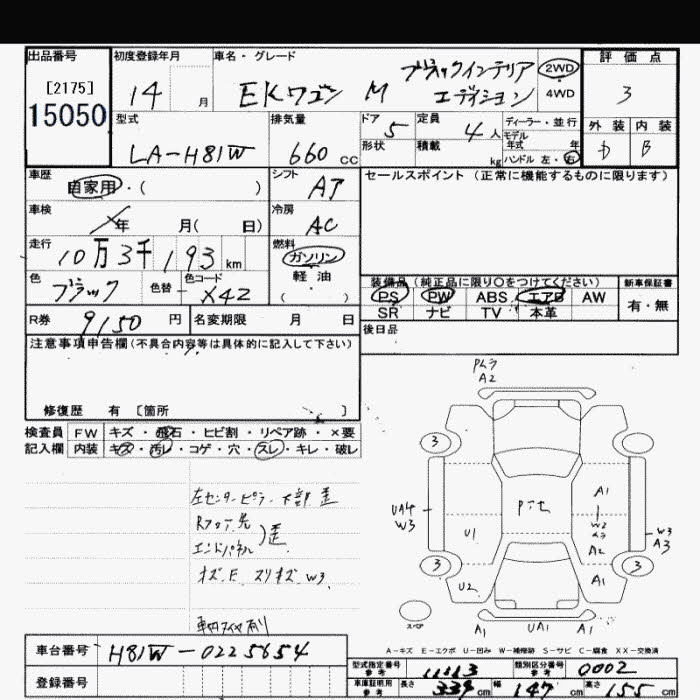 出品番号
[2175]
15050
初度登録年月
14 月
車名・グレード
EKワゴン M ブラックインテリア
エディション
2WD
4WD
評価点
3
外装 内装
D B
型式
LA-H81W
排気量
660 CC
ドア
5
形状
定員
4 人
積載
kg
ディーラー・並行
モデル
年式 年
ハンドル 左・右
車歴
自家用・( )
シフト
AT
セールスポイント(正常に機能するものに限ります)
車検
年 月( 日)
冷房
AC
走行
10万3千193 km
燃料
ガソリン
軽油
( )
色
ブラック
色替
色コード
X42
装備品(純正品に限り○をつけてください)
PS PW ABS エアB AW
SR ナビ TV 本革
新車保証書
有・無
R券
9150 円
名変期限 月 日
後日品
注意事項申告欄(不具合内容等は具体的に記入して下さい)
修復歴 有 [箇所 ]
検査員
記入欄
FW キズ・飛石・ヒビ割・リペア跡・×要
内装 キズ・汚レ・コゲ・穴・スレ・キレ・破レ
左センターピラー下部歪
エンドパネル
歪
W3
PムラA2
3
3
3
UA4
W3
U1
U2
A1
W2
ムラ
A2
A1
W3
A3
A1
UA1
A1
スペア
A-キズ E-エクボ U-凹み W-補修跡 S-サビ C-腐食 XX-交換済
車台番号
H81W-0225654
登録番号
型式指定番号
参考
11113
類別区分番号
参考
0002
車庫証明用
参考
長さ 339 cm
幅 147 cm
高さ 155 cm